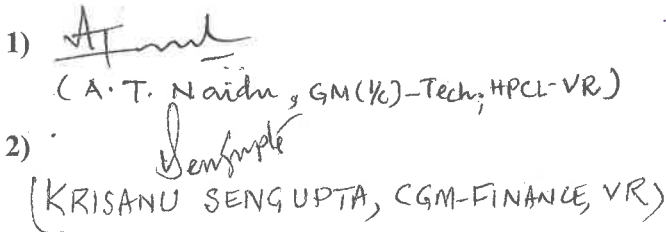 1)
(A.T. Naidu, GM(I/c)-Tech; HPCL-VR)
2)
Sengupta
(KRISANU SENGUPTA, CGM-FINANCE, VR)